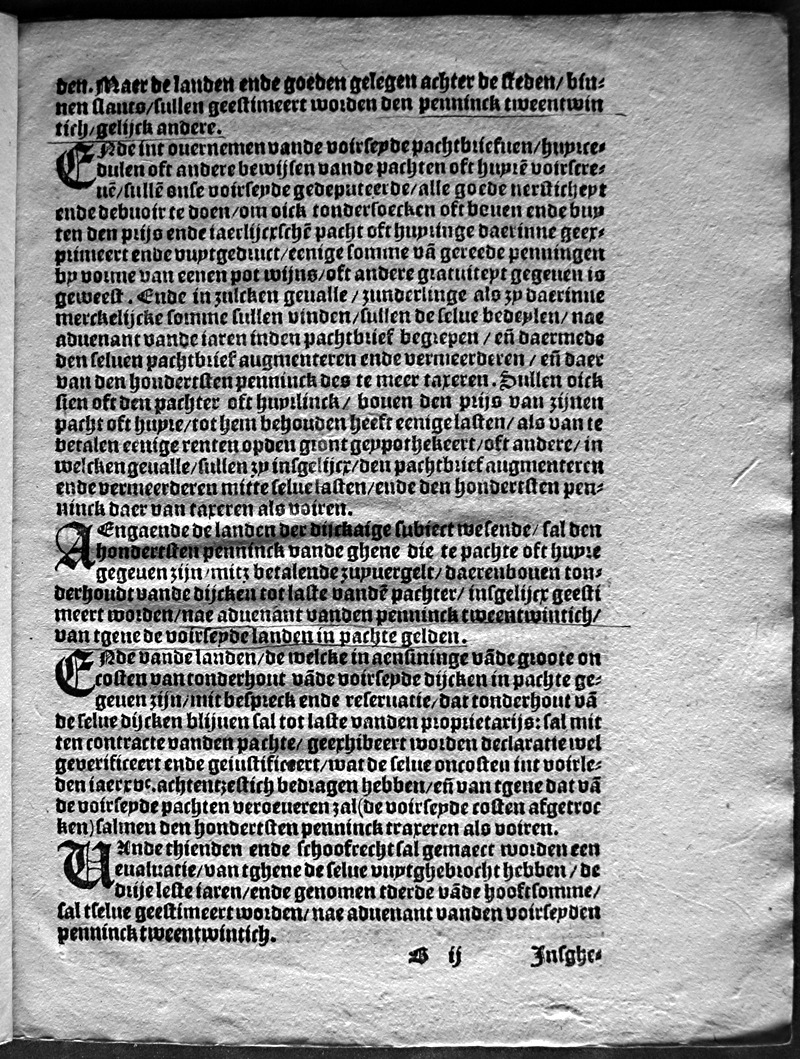 den. Maer de landen ende goeden gelegen achter de steden/ bin-
nen slants/sullen geestimeert worden den penninck tweentwin
tich/gelijck andere.
ENde int ouernemen vande voirseyde pachtbriefuen/huyrce-
dulen oft andere bewijsen vande pachten oft huyrē voirscre-
uē/sullē onse voirseyde gedeputeerde/alle goede nersticheyt
ende debuoir te doen/om oick tondersoecken oft bouen ende buy
ten den prijs ende iaerlijcxschē pacht oft huyringe daerinne geex-
primeert ende vuytgedruct/eenige somme vā gereede penningen
by vorme van eenen pot wijns/oft andere gratuiteyt gegeuen is
geweest. Ende in zulcken geualle/zunderlinge als zy daerinne
merckelijcke somme sullen vinden/sullen de selue bedeylen/nae
aduenant vande iaren inden pachtbrief begrepen/ eñ daermede
den seluen pachtbrief augmenteren ende vermeerderen/ eñ daer
van den hondertsten penninck des te meer taxeren. Sullen oick
sien oft den pachter oft huyrlinck/ bouen den prijs van zijnen
pacht oft huyre/tot hem behouden heeft eenige lasten/ als van te
betalen eenige renten opden gront geypothekeert/oft andere/ in
welcken geualle/sullen zy insgelijcx/den pachtbrief augmenteren
ende vermeerderen mitte selue lasten/ende den hondertsten pen-
ninck daer van taxeren als voiren.
AEngaende de landen der dijckaige subiect wesende/ sal den
hondertsten penninck vande ghene die te pachte oft huyre
gegeuen zijn/mitz betalende zuyuergelt/daerenbouen ton-
derhoudt vande dijcken tot laste vandē pachter/ insgelijcx geesti
meert worden/nae aduenant vanden penninck tweentwintich/
van tgene de voirseyde landen in pachte gelden.
ENde vande landen/de welcke in aensininge vāde groote on
costen van tonderhout vāde voirseyde dijcken in pachte ge-
geuen zijn/mit bespreck ende reseruatie/dat tonderhout vā
de selue dijcken blijuen sal tot laste vanden proprietarijs: sal mit
ten contracte vanden pachte/ geexhibeert worden declaratie wel
geverificeert ende geiustificeert/wat de selue oncosten int voirle-
den iaer xvᶜ. achtentzestich bedragen hebben/eñ van tgene dat vā
de voirseyde pachten veroeueren zal(de voirseyde costen afgetroc
ken)salmen den hondertsten penninck traxeren als voiren.
VAnde thienden ende schoofrecht sal gemaect worden een
eualuatie/van tghene de selue vuytghebrocht hebben/de
drije leste iaren/ende genomen tderde vāde hooftsomme/
sal tselue geestimeert worden/nae aduenant vanden voirseyden
penninck tweentwintich.
B ij Insghe-